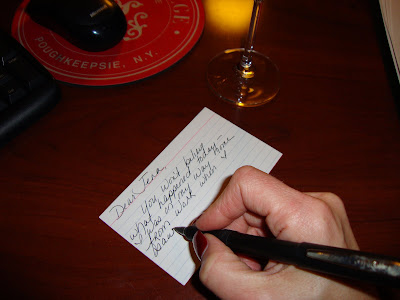 GE.
POUGHKEEPSIE, N.Y.
Dear
You won't believe
what happened today—
I was on my way home
from work when I